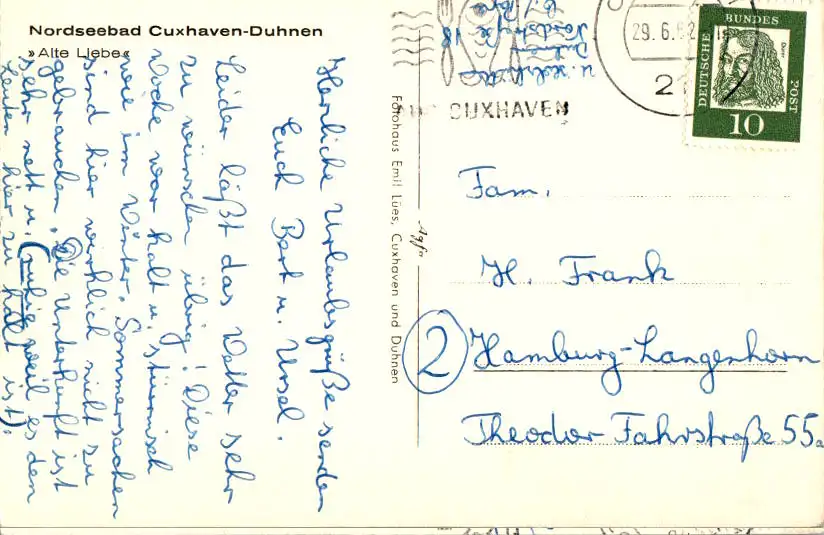 Nordseebad Cuxhaven-Duhnen
»Alte Liebe«
Herrliche Urlaubsgrüße senden
Euch Bert u. Ursel.
Leider läßt das Wetter sehr
zu wünschen übrig! Diese
Woche war kalt u. stürmisch
wie im Winter. Sommersachen
sind hier wirklich nicht zu
gebrauchen. Die Unterkunft ist
sehr nett u. (ruhig weil es den
Leuten hier zu kalt ist).
Fotohaus Emil Lües, Cuxhaven und Duhnen
Agfa
Duhnen
Nordstraße 18
b/
CUXHAVEN
29.6.62
2
DEUTSCHE BUNDESPOST
10
Fam.
H. Frank
2 Hamburg-Langenhorn
Theodor Fahrstraße 55a